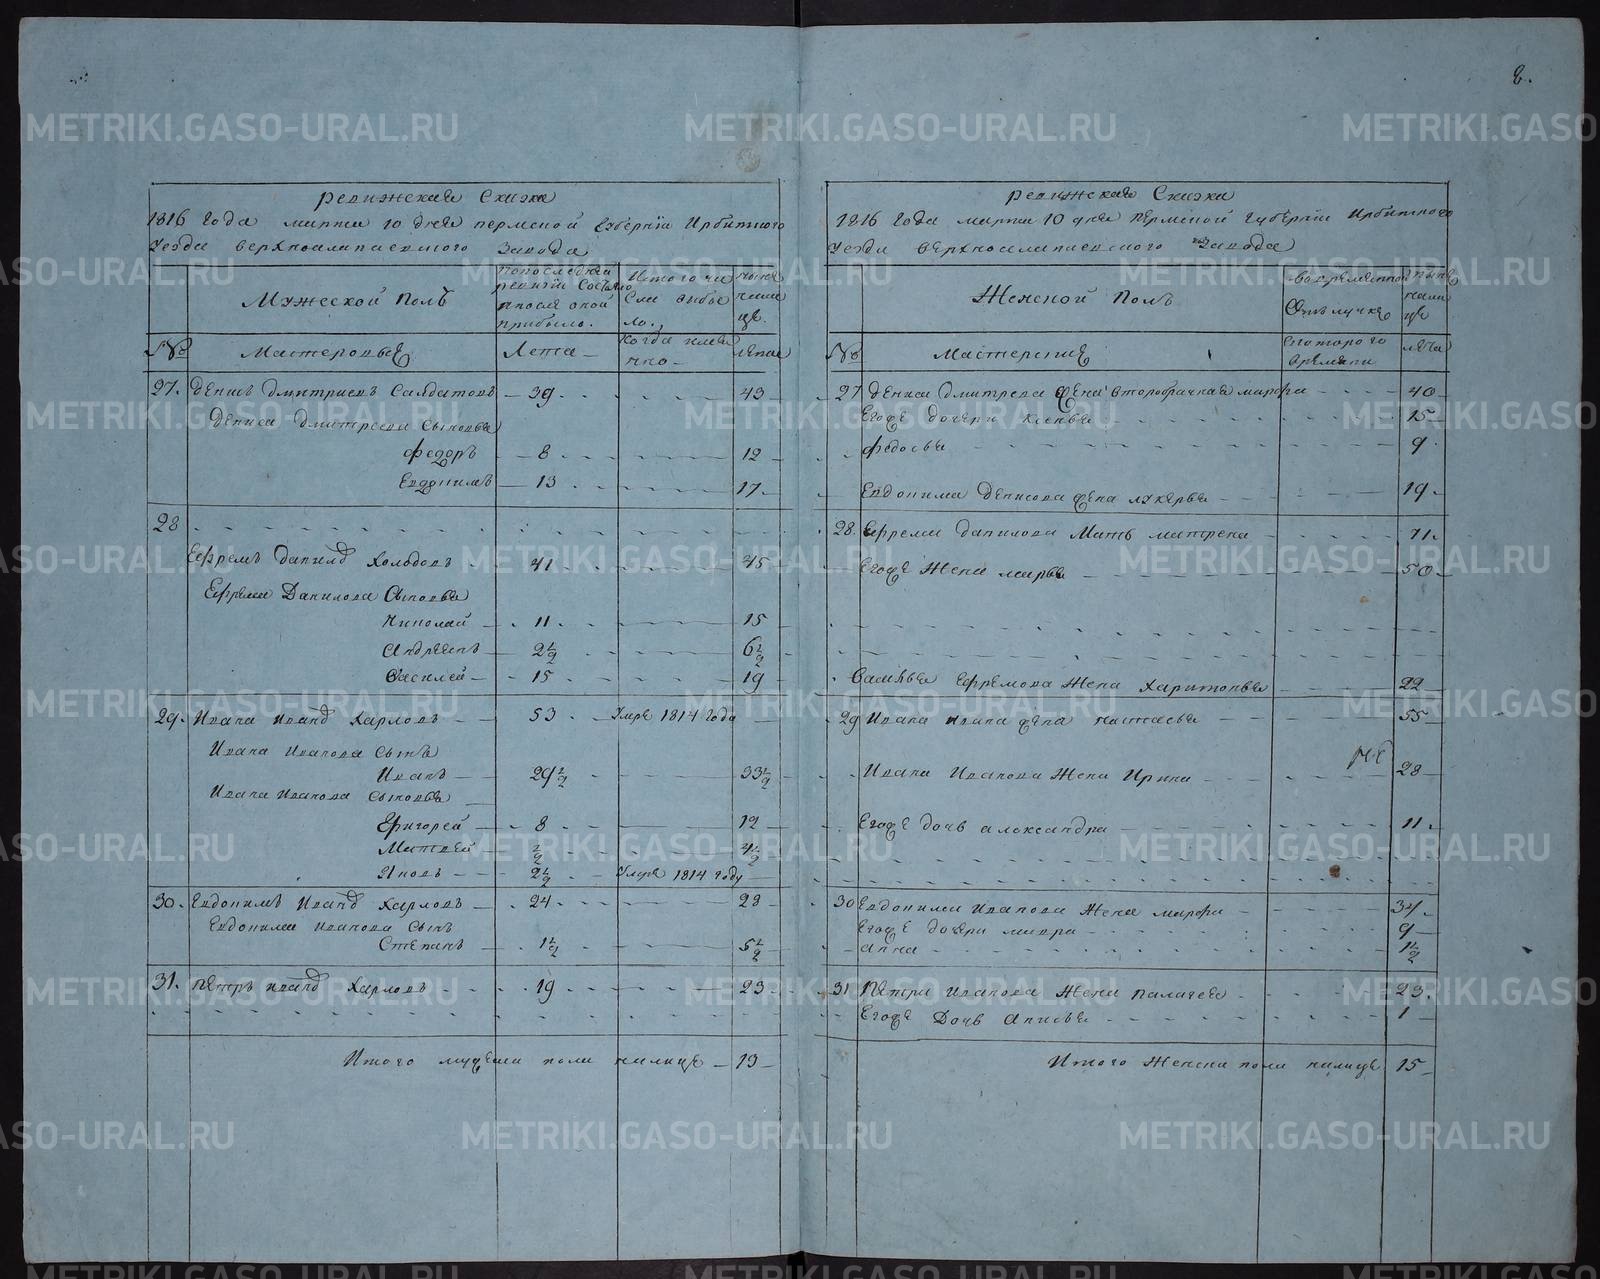 8.
Ревижская Сказка
1816 года марта 10 дня пермской губернiи Ирбитского
уезда верхнеалапаевского завода
Мужеской Полъ
попоследней ревизiи Состояло ипосле оной прибыло.
Изтого числа выбыло.
ныне налице.
№
Мастеровые
Лета
Когда имянно
лета
27. Денисъ Дмитриевъ Салдатовъ — 39 43
Дениса Дмитрева Сыновья
Федоръ — 8 12
Евдокимъ — 13 17
28
Ефремъ Данилов Холодовъ 41 45
Ефрема Данилова Сыновья
Николай — 11 15
Андреянъ — 2½ 6½
Василей — 15 19
29. Ивана Иванов Харловъ — 53 Умре 1814 года
Ивана Иванова Сынъ
Иванъ — 29½ 33½
Ивана Иванова Сыновья
Григорей — 8 12
Матвей — ½ 4½
Яковъ — 2½ Умре 1814 году
30. Евдокимъ Иванов Харловъ — 24 28
Евдокима Иванова Сынъ
Степанъ — 1½ 5½
31. Петръ Иванов Харловъ 19 23
Итого мужеска пола налице — 13
Ревижская Сказка
1816 года марта 10 дня Пермской губернiи Ирбитского
уезда верхнеалапаевского завода
Женской Полъ
Вовременной Отълучке
ныне налице
№
Мастерские
Скоторого времяни
лета
27 Дениса Дмитрева жена второбрачная марфа 40
Егоже дочери 15
Федосья 9
Евдокима Денисова жена лукерья 19
28. Ефрема Данилова Мать матрена 71.
Егоже Жена марья 50
Василья Ефремова Жена Харитонья 22
29 Ивана Ивана жена настасья 55
Ивана Иванова Жена Ирина 28
Егоже дочь александра 11.
30 Евдокима Иванова Жена марфа 34.
Егоже дочери мавра 9
анна 1½
31 Петра Иванова Жена палагея 23.
Егоже Дочь Анисья 1
Итого Женска пола налице 15
METRIKI.GASO-URAL.RU